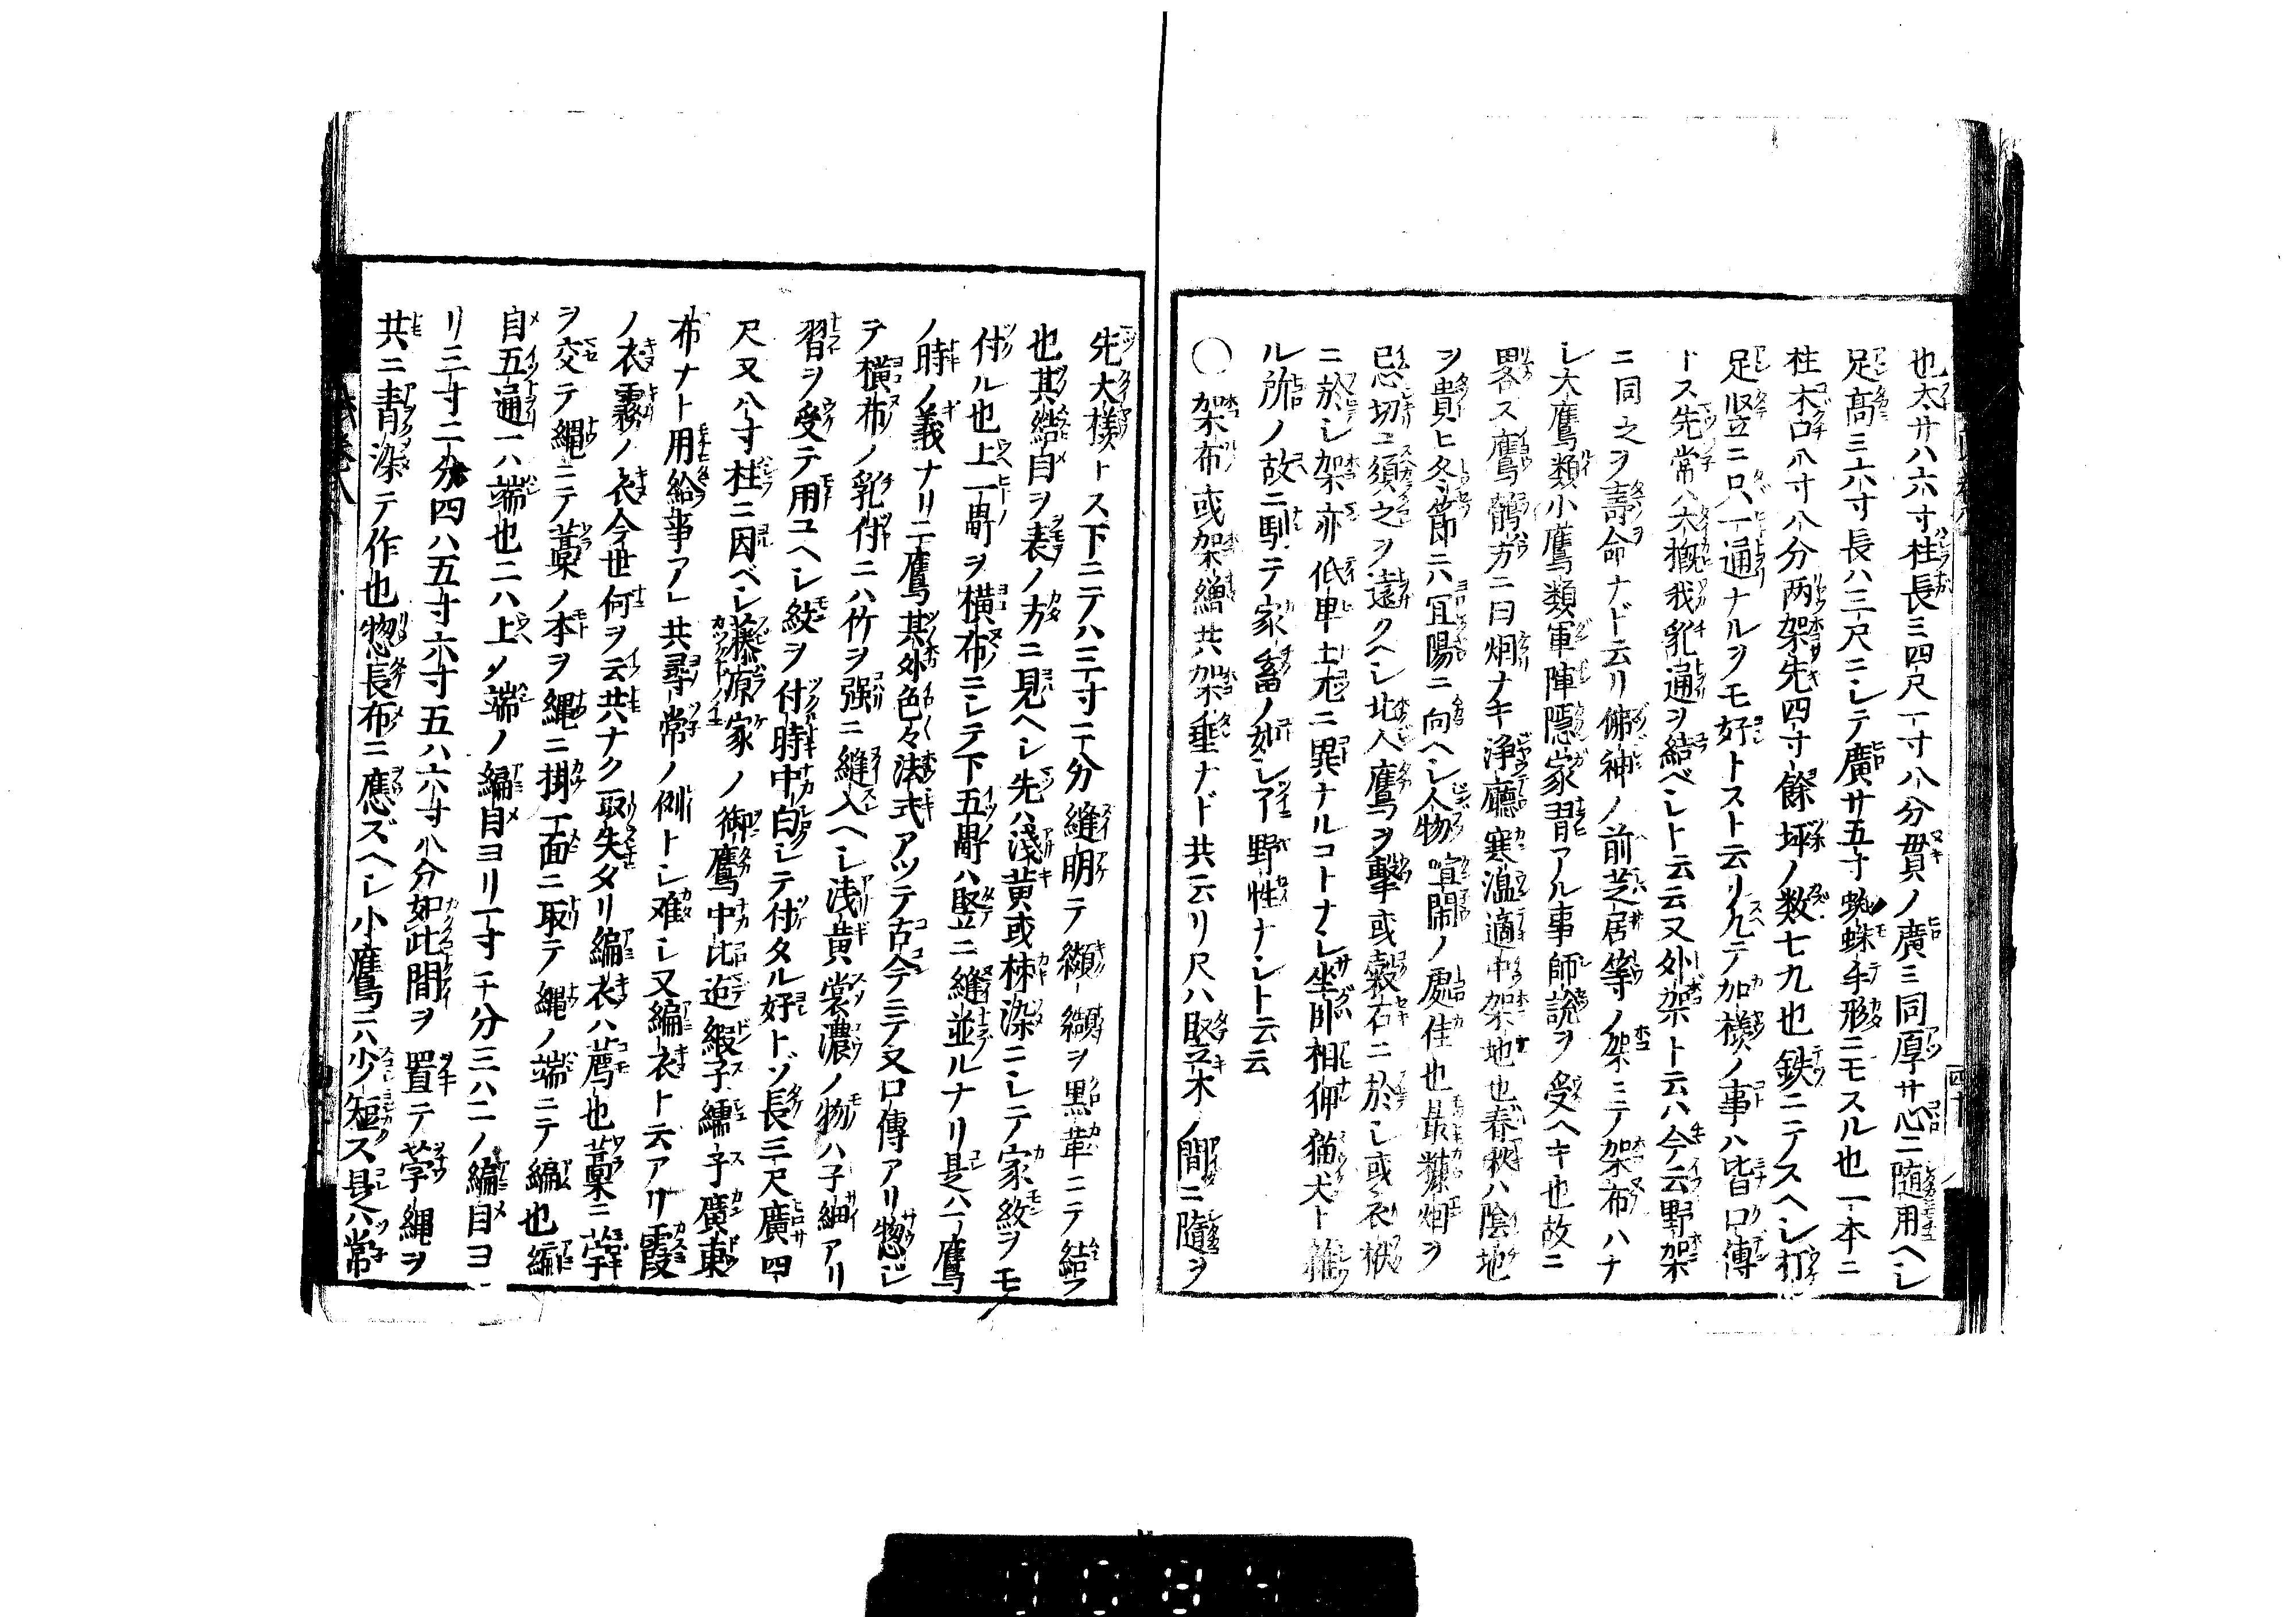 也太サハ六寸柱長ミ四尺一寸八分貫ノ廣ミ同厚サ心ニ随用ヘシ
足高ミ六寸長ハ三尺ニシテ廣サ五寸蜘蛛手形ニモスル也一本ニ
柱木口八寸八分两架先四寸餘坪ノ数七九也鉄ニテスヘシ打
足竪ニ只一通ナルヲモ好トスト云リ凡テ加様ノ事ハ皆口傳
トス先常ハ大概我乳通ヲ結ベシト云云又外架ト云ハ今云野架
ニ同之ヲ壽命ナドト云リ佛神ノ前芝居等ノ架ニテ架布ハナ
シ大鷹類小鷹類軍陣隠家習アル事師説ヲ受ヘキ也故ニ
畧ス鷹鶻方ニ曰烟ナキ浄廳寒温適中架地也春秋ハ陰地
ヲ貴ヒ冬節ニハ宜陽ニ向ヘシ人物喧閙ノ處佳也最糠烟ヲ
忌切ニ須之ヲ遠クヘシ北人鷹ヲ擊或穀石ニ於シ或衣桁
ニ於シ架亦低卑土木ニ異ナルコトナシ坐卧相伸猫犬ト雜
ル所ノ故ニ馴テ家畜ノ如シ了野性ナシト云云
〇架布或架繒共架垂ナド共云リ尺ハ竪木ノ間ニ隨ヲ
先大様トス下ニテハ三寸二分縫明テ纐纈ヲ黒革ニテ結フ
也其結目ヲ表ノ方ニ見ヘシ先ハ淺黄或柹染ニシテ家紋ヲモ
付ル也上一幅ヲ横布ニシテ下五幅ハ竪ニ縫並ルナリ是ハ一鷹
ノ時ノ義ナリ二鷹其外色々法式アツテ古今ニテ又口傳アリ惣シ
テ横布ノ乳付ニハ竹ヲ强ニ縫入ヘシ浅黄裳濃ノ物ハ子細アリ
習ヲ受テ用ユヘシ紋ヲ付時中白シテ付タル好トゾ長三尺廣四
尺又八寸柱ニ因ベシ藤原家ノ御鷹中比迠緞子繻子廣東
布ナト用給事アレ共尋常ノ例トシ难シ又編衣ト云アリ霞
ノ衣霧ノ衣今世何ヲ云共ナク取失タリ編衣ハ薦也藁ニ苧
ヲ交テ繩ニテ藁ノ本ヲ繩ニ掛一面ニ取テ繩ノ端ニテ編也編
目五通一ハ端也二ハ上ノ端ノ編目ヨリ一寸二分三ハ二ノ編目ヨ
リ三寸二分四ハ五寸六寸五八六寸八分如此間ヲ置テ苧繩ヲ
共ニ青染テ作也惣長布ニ應ズヘシ小鷹ニハ少短ス是ハ常
卷八
四十